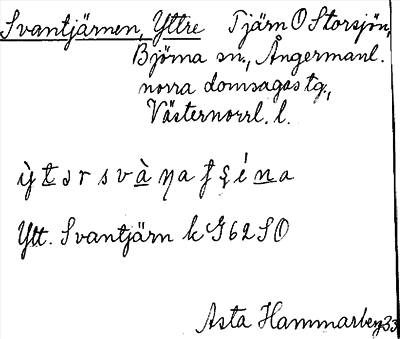 Svantjärnen, Yttre Tjärn O Storsjön,
Bjärna sn, Ångermanl.
norra domsagas tg.,
Västernorrl. l.
Ytt. Svantjärn k G 62 S O
Asta Hammarberg 33